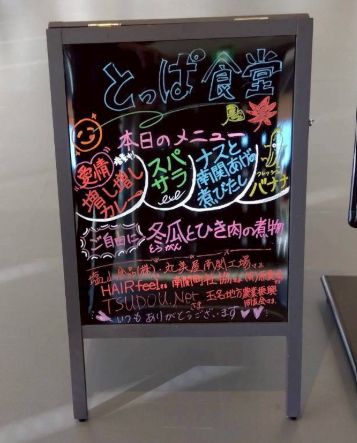 とっぱ食堂
本日のメニュー
愛情
増し増し
カレー
スパ
サラ
ナスと
南関あげの
煮びたし
フレッシュ
バナナ
ご自由に
冬瓜とひき肉の煮物
とうがん
丸美屋南関工場さま
HAIR feelさま 南関町社協さま
TSUDOU.Net 玉名地方農業振興
いつもありがとうございます